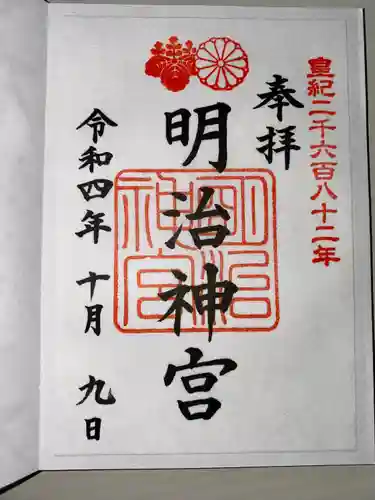 皇紀二千六百八十二年
奉拝
明治神宮
明治神宮
令和四年 十月 九日